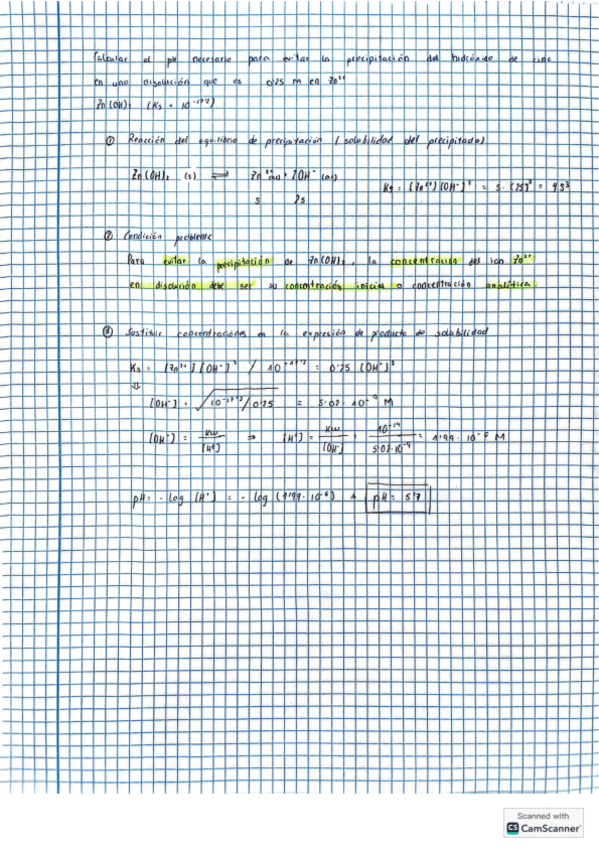 Calcular el pH necesario para evitar la precipitación del hidróxido de cinc
en una disolución que es 0'25 M en Zn²⁺
Zn(OH)₂ (Ks = 10⁻¹⁷'²)
① Reacción del equilibrio de precipitación (solubilidad del precipitado)
Zn(OH)₂ (s) ⇌ Zn²⁺(ac) + 2OH⁻ (ac)
s 2s
Ks = [Zn²⁺][OH⁻]² = s · (2s)² = 4s³
② Condición problema
Para evitar la precipitación de Zn(OH)₂, la concentración del ion Zn²⁺
en disolución debe ser su concentración inicial o concentración analítica.
③ Sustituir concentraciones en la expresión de producto de solubilidad
Ks = [Zn²⁺][OH⁻]² / 10⁻¹⁷'² = 0'25 [OH⁻]²
⇓
[OH⁻] = √10⁻¹⁷'²/0'25 = 5'02 · 10⁻⁹ M
[OH⁻] = Kw/[H⁺] ⇒ [H⁺] = Kw/[OH⁻] = 10⁻¹⁴/5'02·10⁻⁹ = 1'99 · 10⁻⁶ M
pH = - log [H⁺] = - log (1'99 · 10⁻⁶) pH = 5'7
Scanned with
CS CamScanner